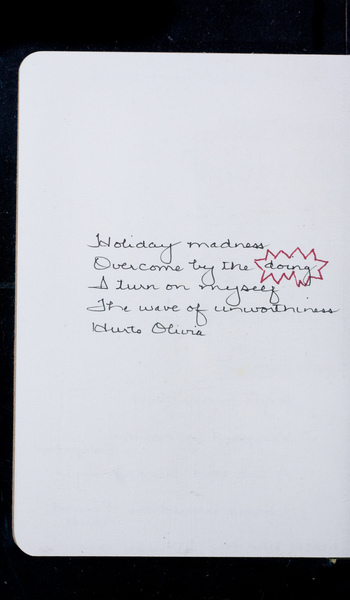 Holiday madness
Overcome by the doing
I turn on myself
The wave of unworthiness
Hurts Olivia